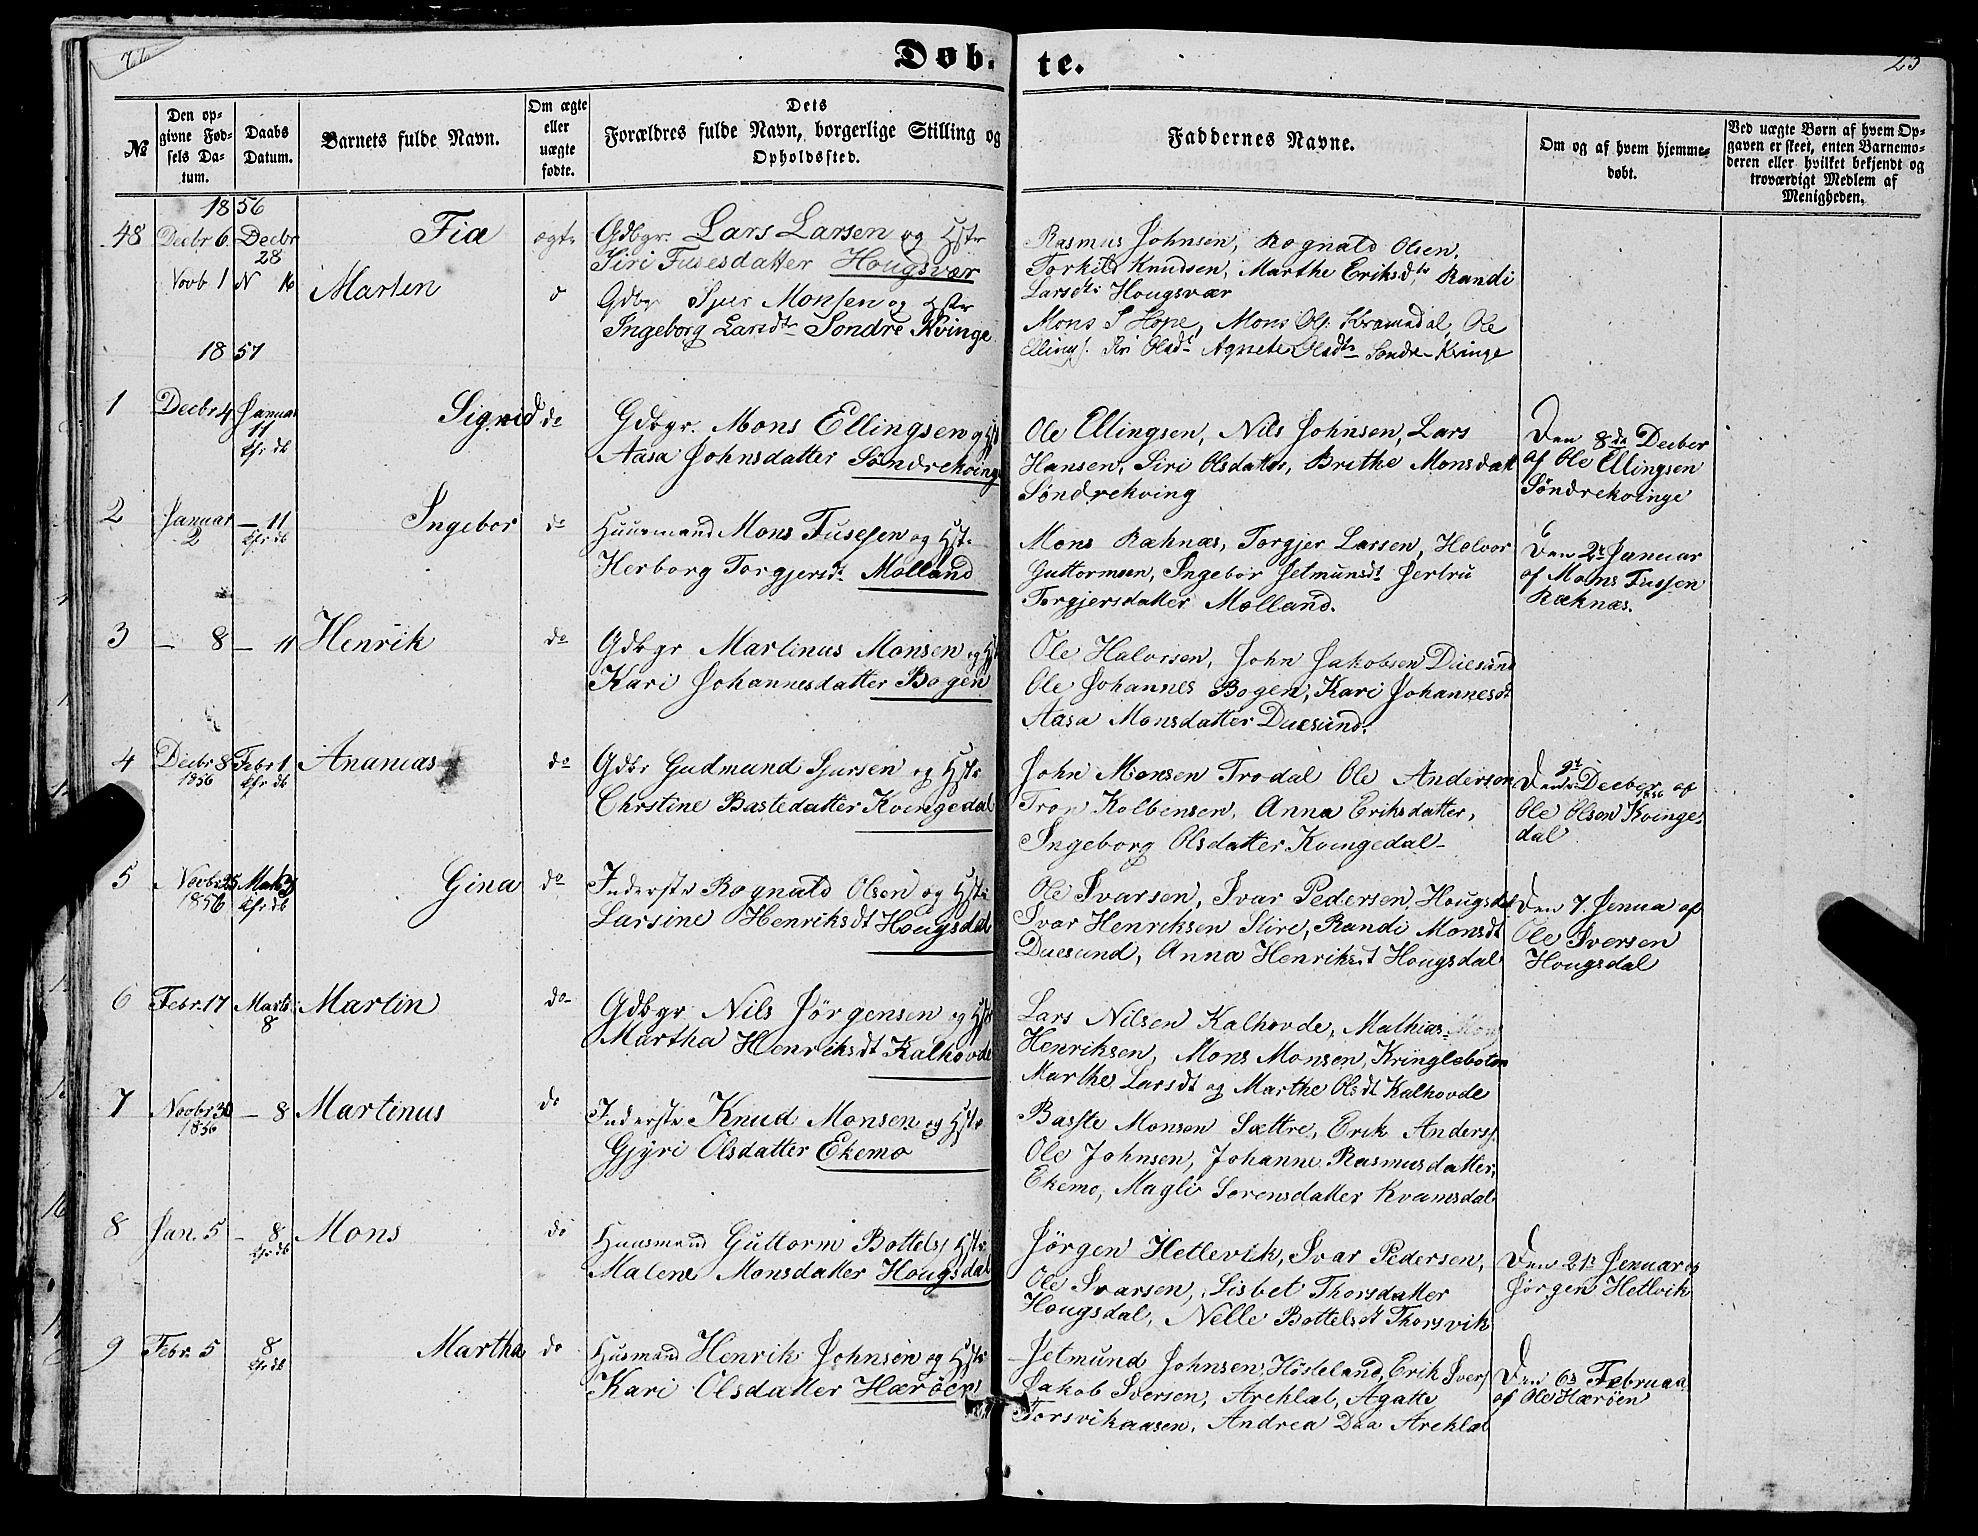 Døb-te.
23
№
Den op-
givne Fød-
sels Da-
tum.
Daabs
Datum.
Barnets fulde Navn.
Om ægte
eller
uægte
fødte.
Dets
Forældres fulde Navn, borgerlige Stilling og
Opholdssted.
Faddernes Navne.
Om og af hvem hjemme-
døbt.
Ved uægte Børn af hvem Op-
gaven er skeet, enten Barnemo-
deren eller hvilket bekjendt og
troværdigt Medlem af
Menigheden.
1856
48 Decbr 6 Decbr 28 Fia ægte Gdbgr. Lars Larsen og Hstr
Siri Fusesdatter Hougsvær
Rasmus Johnsen, Rognald Olsen,
Torkild Knudsen, Marthe Eriksdtr, Randi
Larsdtr Hougsvær
Novb 1 N 16 Marten d Gdbgr Sjur Monsen og Hstr
Ingeborg Larsdtr Søndre Kvinge
Mons S Hope, Mons Ols. Kvamsdal, Ole
Ellings. Siri Olsdt Agnete Olsdtr Søndre Kvinge
1857
1 Decbr 4 Januar 11 Kfr db Sigrid do Gdbgr. Mons Ellingsen og Hst
Aasa Johnsdatter Søndrekvinge
Ole Ellingsen, Nils Johnsen, Lars
Hansen, Siri Olsdatter, Brithe Monsdatt
Søndrekving
Den 8de Decber
af Ole Ellingsen
Søndrekvinge
2 Januar 2 — 11 Kfr db Ingebor do Huusmand Mons Fusessen og Hst.
Herborg Torgjersdt. Molland
Mons Raknæs, Torgjer Larsen, Halvor
Guttormsen, Ingebor Jetmunsdt Jertru
Torgjersdatter Molland.
Den 2t Januar
af Mons Fussen
Raknæs.
3 — 8 — 11 Henrik do Gdbgr Martinus Monsen og Hst
Kari Johannesdatter Bogen
Ole Halvorsen, John Jakobsen Duesund
Ole Johannes Bogen, Kari Johannesdt
Aasa Monsdatter Duesund.
4 Decbr 8 1856 Febr 1 Kfr db Ananias do Gdbr Gudmund Sjursen og Hstr
Chrstine Bastedatter Kvingedal
John Monsen Trodal Ole Anderson
Tron Kolbensen, Anna Eriksdatter,
Ingeborg Olsdatter Kvingedal-
Den 9t Decber 1856 af
Ole Olsen Kvinge-
dal
5 Novbr 25 1856 Kfr db Gina do Inderste Rognald Olsen og Hst
Larsine Henriksdt Hougsdal
Ole Ivarsen, Ivar Pedersen, Hougsdal
Ivar Henriksen Stire, Randi Monsdt
Duesund, Anna Henriksdt Hougsdal
Den 7 Janua af
Ole Iversen
Hougsdal
6 Febr. 17 Marts 8 Martin do Gdbgr Nils Jørgensen og Hst
Martha Henriksdt Kalhovde
Lars Nilsen Kalhovde, Mathias
Henriksen, Mons Monsen, Kringleboten
Marthe Larsdt og Marthe Olsdt Kalhovde
7 Novbr 30 1856 — 8 Martinus do Inderste Knud Monsen og Hst
Gjyri Olsdatter Ekemo
Basste Monsen Sættre, Erik Anders.
Ole Johnsen, Johanne Rasmusdatter,
Ekemo, Magli Sørensdatter Kvamsdal
8 Jan. 5 — 8 Kfr db Mons do Huusmand Guttorm Bottels. Hst
Malene Monsdatter Hougsdal
Jørgen Hetlevik, Ivar Pedersen,
Ole Ivarsen, Lisbet Thorsdatter
Hougsdal, Nelle Bottelsdt Thorsvik
Den 21 Januar af
Jørgen Hetlvik
9 Febr. 5 8 Kfr db Martha do Husmand Henrik Johnsen og Hst
Kari Olsdatter Hærøen
Jetmund Johnsen, Høsteland, Erik Ivers.
Jakob Iversen, Areklæt, Agatte
Torsvikaasen, Andrea Daa Areklæt
Den 6 Februaa
af Ole Hærøen